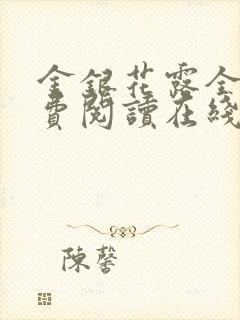 金銀花露全
費閱讀在綫
陳馨